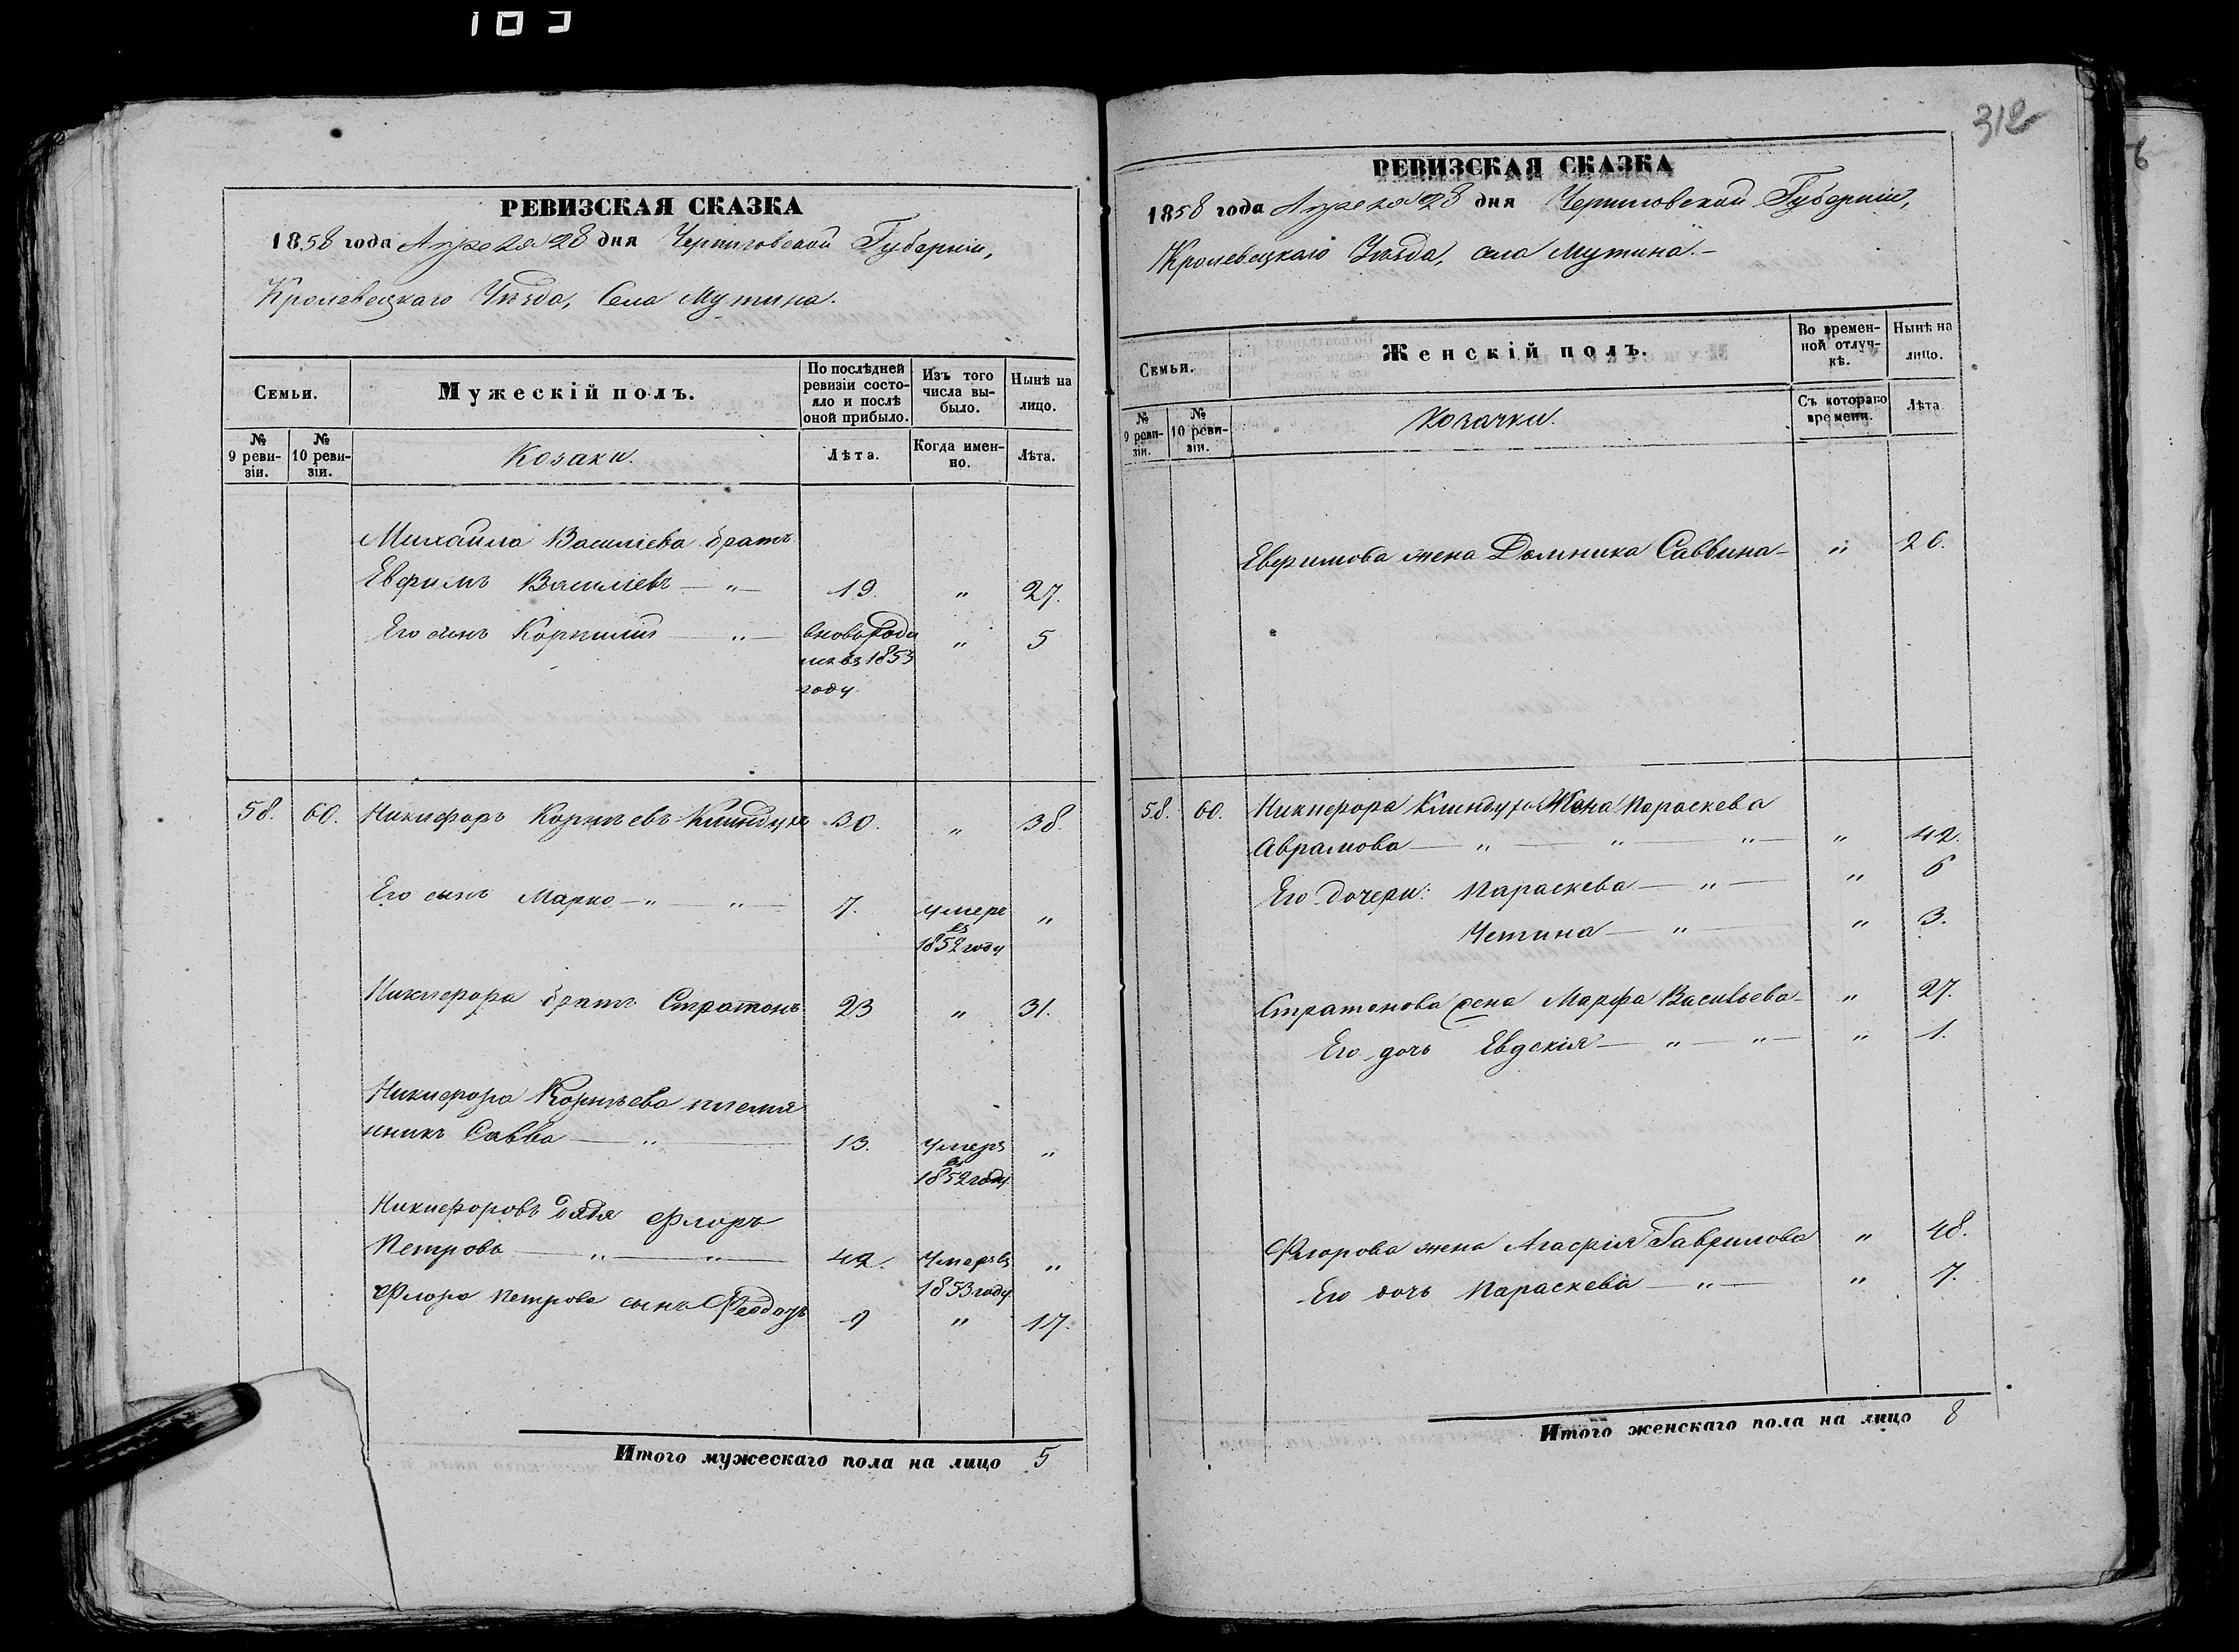 103
РЕВИЗСКАЯ СКАЗКА
1858 года Апреля 28 дня Черниговской Губерніи,
Кролевецкаго Уѣзда, Села Мутина.
Семьи.
Мужескій полъ.
По послѣдней ревизіи состояло и послѣ оной прибыло.
Изъ того числа выбыло.
Нынѣ на лицо.
№ 9 ревизіи.
№ 10 ревизіи.
Козаки.
Лѣта.
Когда именно.
Лѣта.
Михайла Василіева братъ
Евфимъ Василіевъ — " — 19. " 27.
Его сынъ Корнилій — " — вновь роди " 5
лся въ 1853
году
58. 60. Никифоръ Корнѣевъ Клиндухъ 30. " 38.
Его сынъ Марко — " — " — 7. умеръ "
въ
1852 году
Никифора братъ Стратонъ 23 " 31.
Никифора Корнѣева племя
нникъ Савва — " — 13. умеръ "
въ
1852 году
Никифоровъ дядя Флоръ
Петровъ — " — " — 42. умеръ въ "
1853 году
Флора Петрова сынъ Феодоръ 9 " 17.
Итого мужескаго пола на лицо 5
312
6
РЕВИЗСКАЯ СКАЗКА
1858 года Апреля 28 дня Черниговской Губерніи,
Кролевецкаго Уѣзда, села Мутина. —
Семьи.
Женскій полъ.
Во временной отлучкѣ.
Нынѣ на лицо.
№ 9 ревизіи.
№ 10 ревизіи.
Козачки.
Съ котораго времени.
Лѣта
Евфимова жена Домника Саввина — " 26.
58. 60. Никифора Клиндуха Жена Параскева
Аврамова — " — " — " — " 42.
Его дочери: Параскева — " — " 6
Устина — " — " 3.
Стратонова жена Марфа Васильева — " 27.
Его дочь Евдокія — " — " — " 1.
Флорова жена Агафія Гаврилова " 48.
Его дочь Параскева — " — " 7.
Итого женскаго пола на лицо 8